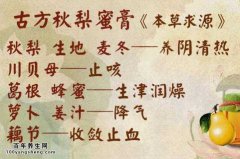 古方秋梨蜜膏《本草求源》
秋梨 生地 麦冬——养阴清热
川贝母——止咳
葛根 蜂蜜——生津润燥
萝卜 姜汁——降气
藕节——收敛止血
百年养生网
www.100yangsheng.com